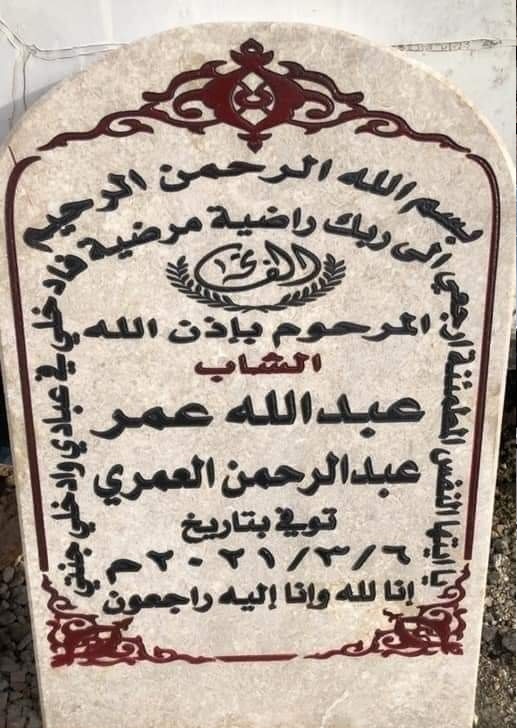 بسم الله الرحمن الرحيم
يا ايتها النفس المطمئنة ارجعي الى ربك راضية مرضية فادخلي في عبادي وادخلي جنتي
الفاتحة
المرحوم بإذن الله
الشاب
عبدالله عمر
عبدالرحمن العمري
توفي بتاريخ
٢٠٢١/٣/٦ م
إنا لله وانا إليه راجعون